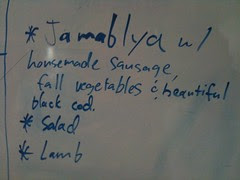 * Jamablya w/
housemade sausage,
fall vegetables & beautiful
black cod.
* Salad
* Lamb